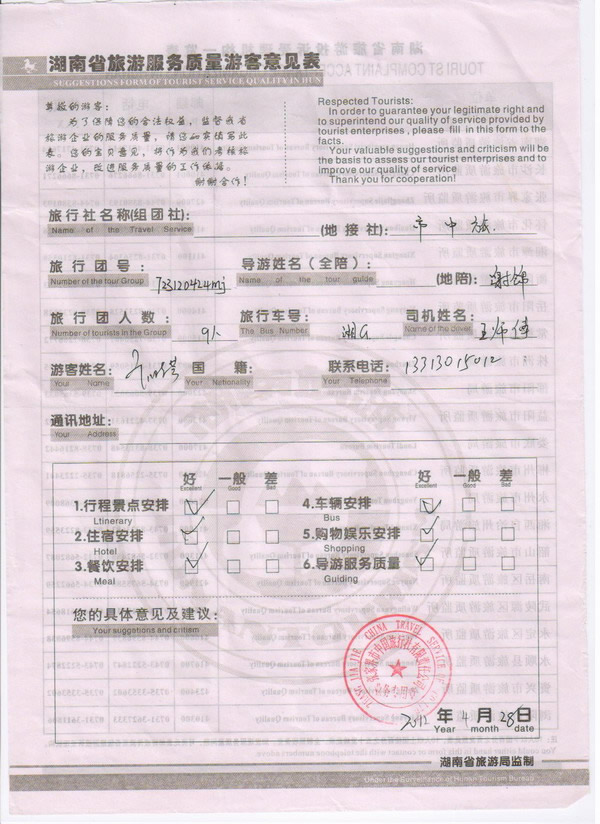 湖南省旅游服务质量游客意见表
SUGGESTIONS FORM OF TOURIST SERVICE QUALITY IN HUN
尊敬的游客:
为了保障您的合法权益,监督我省
旅游企业的服务质量,请您如实填写此
表。您的宝贵意见,将作为我们考核旅
游企业,改进服务质量的工作依据。
谢谢合作!
Respected Tourists:
In order to guarantee your legitimate right and
to superintend our quality of service provided by
tourist enterprises , please fill in this form to the
facts.
Your valuable suggestions and criticism will be
the basis to assess our tourist enterprises and to
improve our quality of service
Thank you for cooperation!
旅行社名称(组团社): (地接社): 市中旅
Name of the Travel Service
旅行团号: 723120424mj 导游姓名(全陪): (地陪): 谢锦
Number of the tour Group Name of the tour guide
旅行团人数: 9人 旅行车号: 湘G 司机姓名: 王师傅
Number of tourists in the Group The Bus Number Name of the driver
游客姓名: 国籍: 联系电话: 13313015012
Your Name Your Nationality Your Telephone
通讯地址:
Your Address
好 一般 差 好 一般 差
Excellent Good Bad Excellent Good Bad
1.行程景点安排 4.车辆安排
Ltinerary Bus
2.住宿安排 5.购物娱乐安排
Hotel Shopping
3.餐饮安排 6.导游服务质量
Meal Guiding
您的具体意见及建议:
Your suggetions and critism
ZHANG JIA JIE CHINA TRAVEL SERVICE CO
张家界市中国旅行社有限责任公司
2012 年 4 月 28 日
Year month date
湖南省旅游局监制
Under the Surveillance of Hunan Tourism Bureau